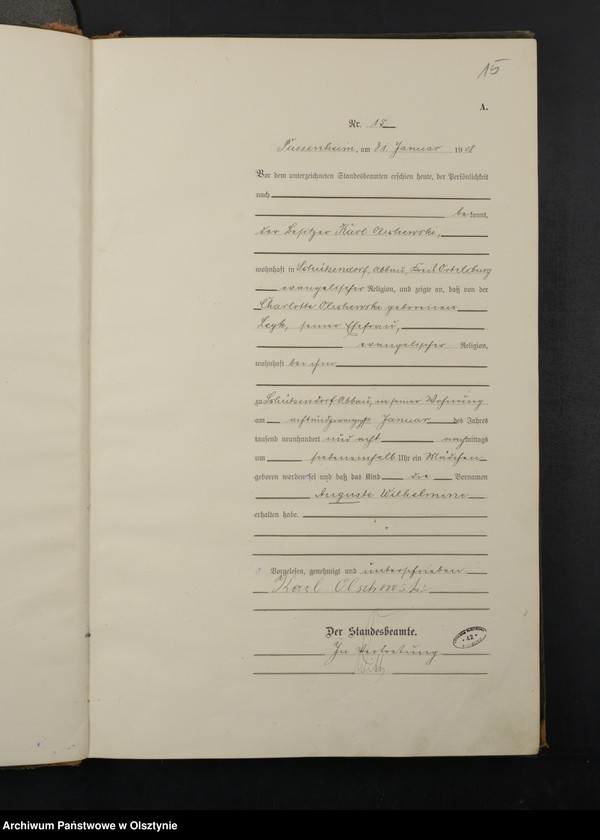 15
A.
Nr. 15
Pussenheim, am 31. Januar 1908
Vor dem unterzeichneten Standesbeamten erschien heute, der Persönlichkeit
nach
bekannt,
der Besitzer Karl Olschewski,
wohnhaft in Schützendorf, Abbau, Kreis Ortelsburg
evangelischer Religion, und zeigte an, daß von der
Charlotte Olschewski geborenen
Leyk, seiner Ehefrau,
evangelischer Religion,
wohnhaft bei ihm
zu Schützendorf Abbau, in seiner Wohnung
am achtundzwanzigsten Januar des Jahres
tausend neunhundert und acht nachmittags
um siebeneinhalb Uhr ein Mädchen
geboren worden sei und daß das Kind die Vornamen
Auguste Wilhelmine
erhalten habe.
Vorgelesen, genehmigt und unterschrieben
Karl Olschewski
Der Standesbeamte.
In Vertretung
Archiwum Państwowe w Olsztynie